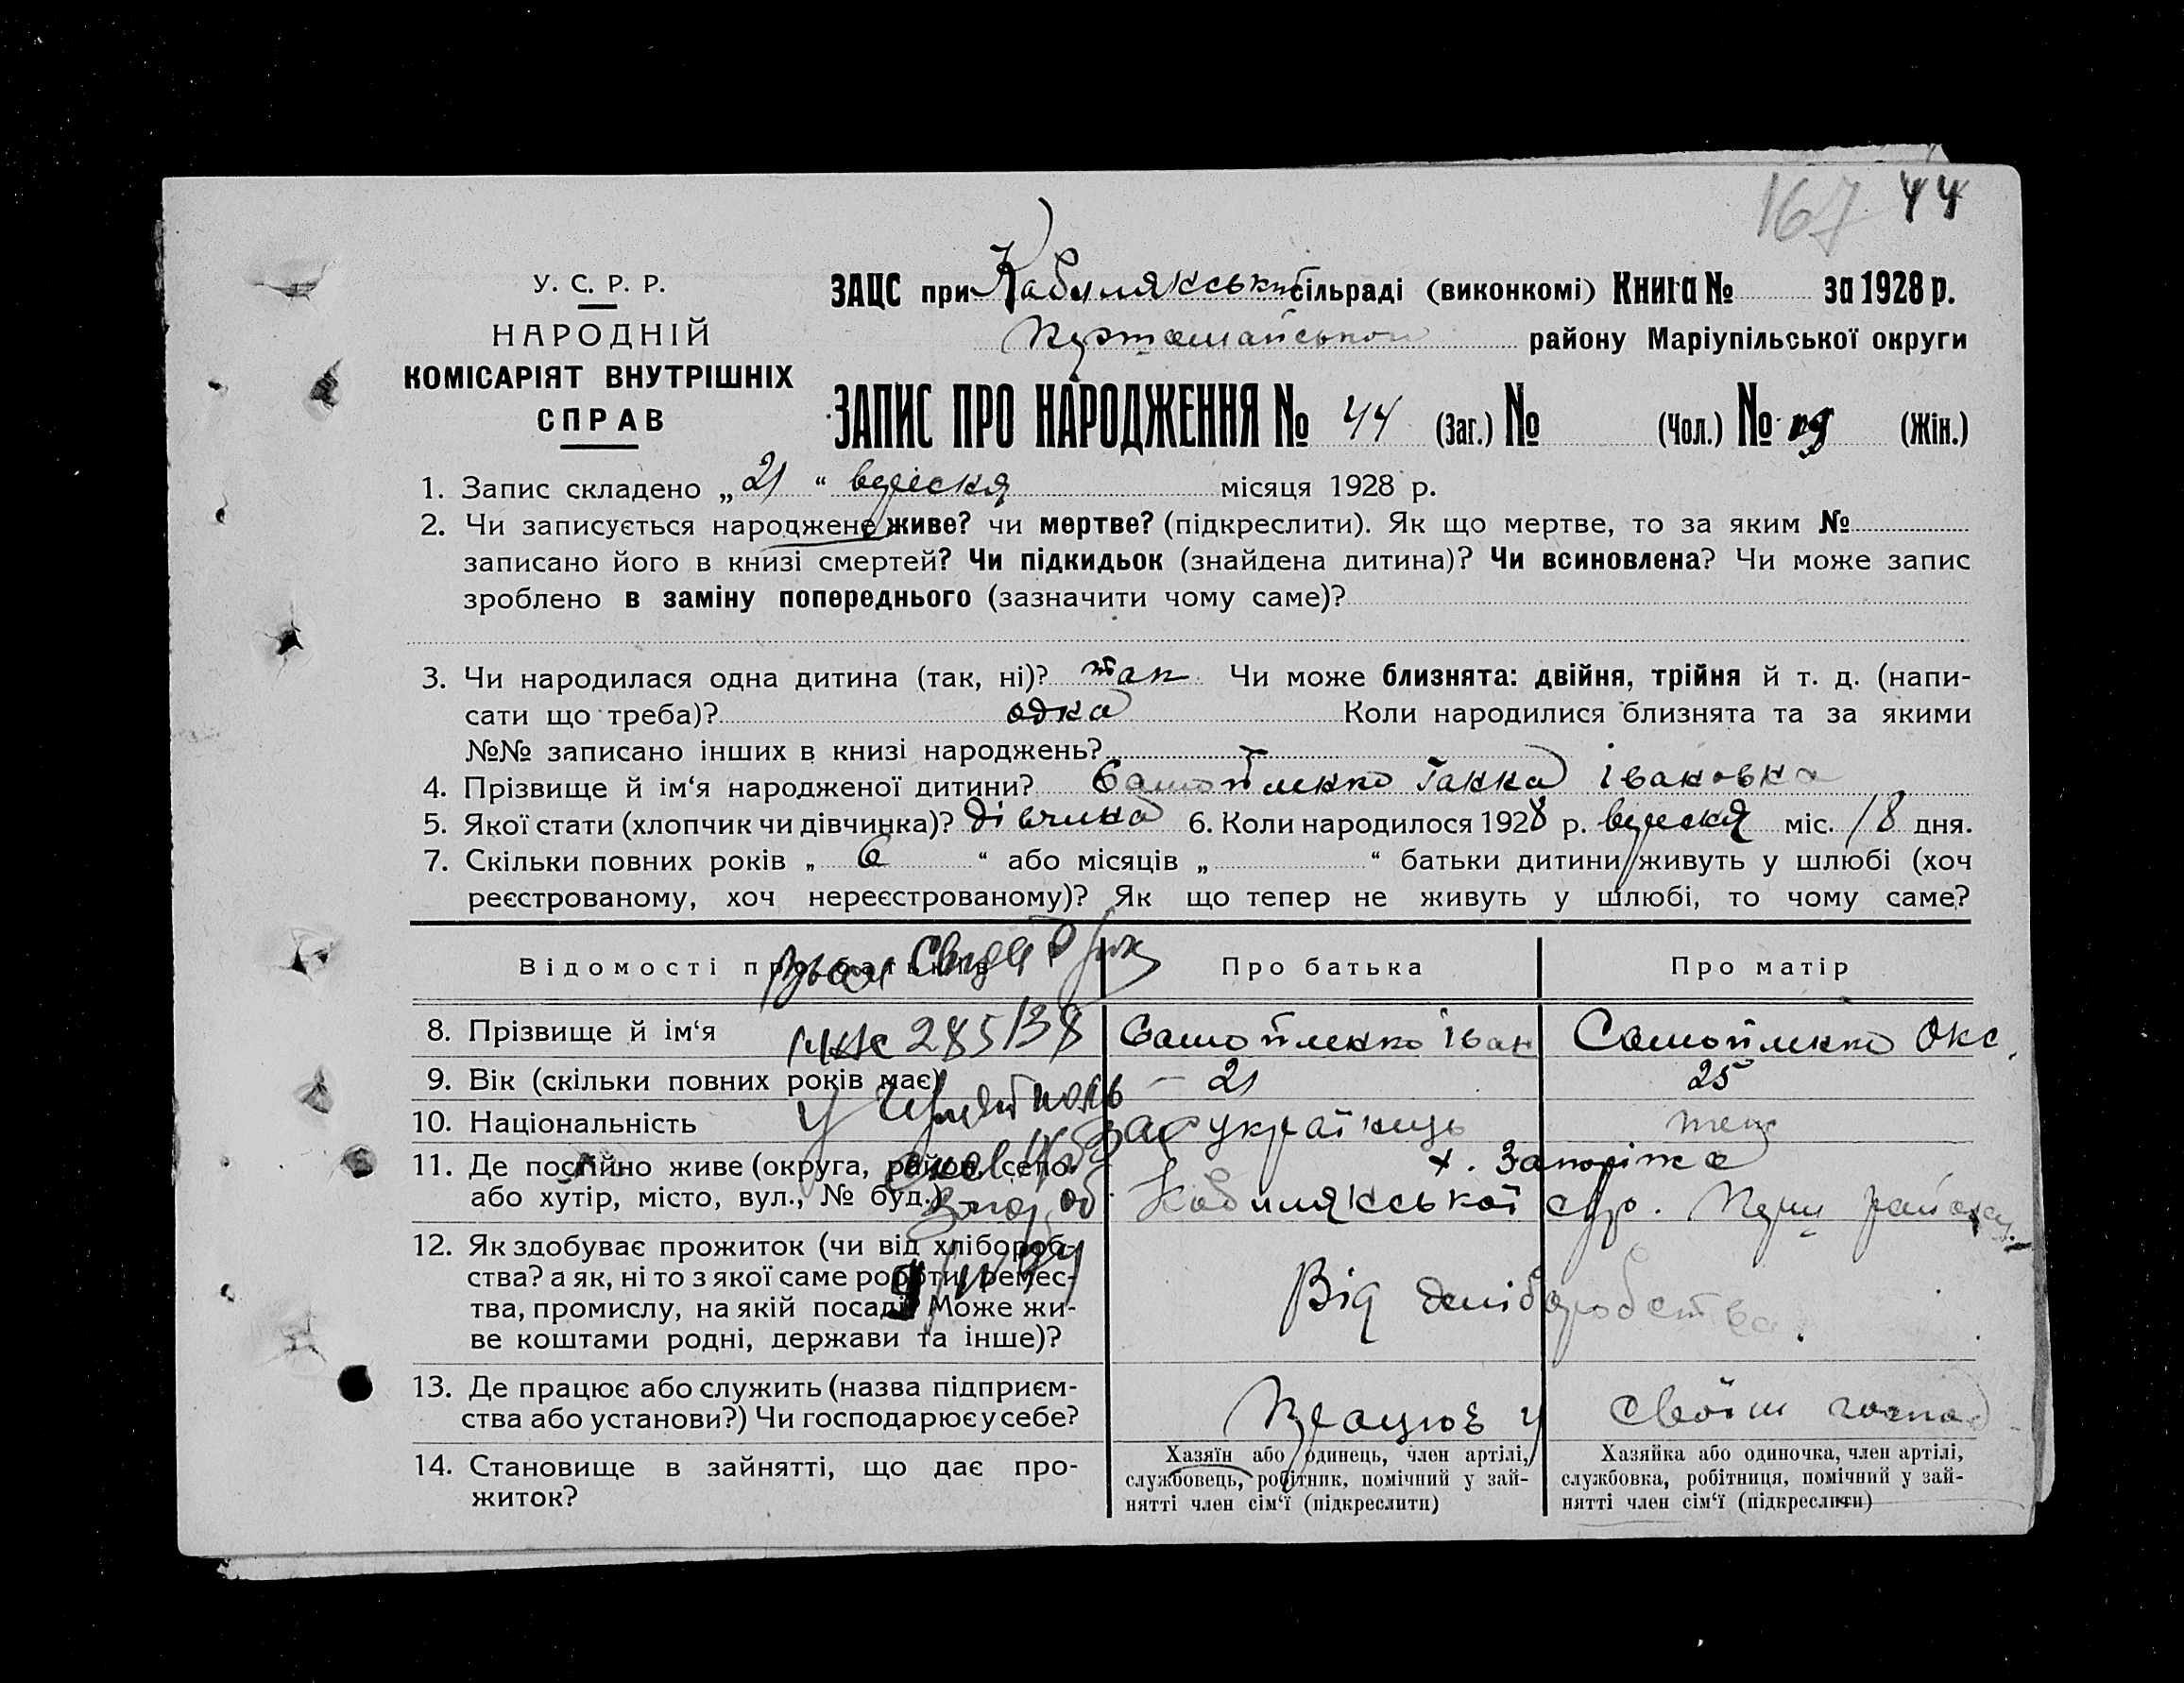 167 44
У. С. Р. Р.
НАРОДНІЙ
КОМІСАРІЯТ ВНУТРІШНІХ
СПРАВ
ЗАЦС при сільраді (виконкомі) Книга № за 1928 р.
району Маріупільської округи
ЗАПИС ПРО НАРОДЖЕННЯ № 44 (Заг.) № (Чол.) № (Жін.)
1. Запис складено „ 21 “ вересня місяця 1928 р.
2. Чи записується народжене живе? чи мертве? (підкреслити). Як що мертве, то за яким №
записано його в книзі смертей? Чи підкидьок (знайдена дитина)? Чи всиновлена? Чи може запис
зроблено в заміну попереднього (зазначити чому саме)?
3. Чи народилася одна дитина (так, ні)? так Чи може близнята: двійня, трійня й т. д. (напи-
сати що треба)? одна Коли народилися близнята та за якими
№№ записано інших в книзі народжень?
4. Прізвище й ім‘я народженої дитини? Самойленко Ганна Івановна
5. Якої стати (хлопчик чи дівчинка)? дівчина 6. Коли народилося 1928 р. вересня міс. 18 дня.
7. Скільки повних років „ 6 “ або місяців „ “ батьки дитини живуть у шлюбі (хоч
реєстрованому, хоч нереєстрованому)? Як що тепер не живуть у шлюбі, то чому саме?
Відомості про батьків Про батька Про матір
8. Прізвище й ім‘я Самойленко Іван Самойленко Окс.
285138
9. Вік (скільки повних років має) 21 25
10. Національність українець теж
11. Де постійно живе (округа, район, село х. Запоріжа
або хутір, місто, вул., № буд.)
12. Як здобуває прожиток (чи від хлібороб-
ства? а як, ні то з якої саме роботи, ремес-
тва, промислу, на якій посаді? Може жи- Від хліборобства
ве коштами родні, держави та інше)?
13. Де працює або служить (назва підприєм- Працює у своїм господ
ства або установи?) Чи господарює у себе?
14. Становище в зайнятті, що дає про-
житок?
Хазяїн або одинець, член артілі,
службовець, робітник, помічний у зай-
нятті член сім‘ї (підкреслити)
Хазяйка або одиночка, член артілі,
службовка, робітниця, помічний у зай-
нятті член сім‘ї (підкреслити)